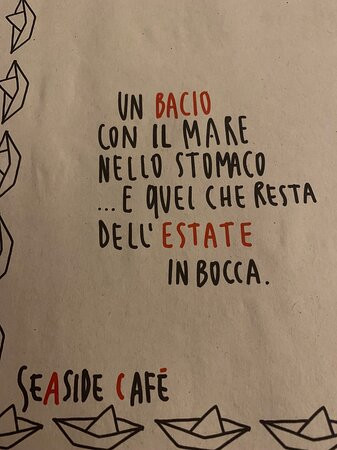 UN BACIO
CON IL MARE
NELLO STOMACO
...E QUEL CHE RESTA
DELL'ESTATE
IN BOCCA.
SEASIDE CAFÉ